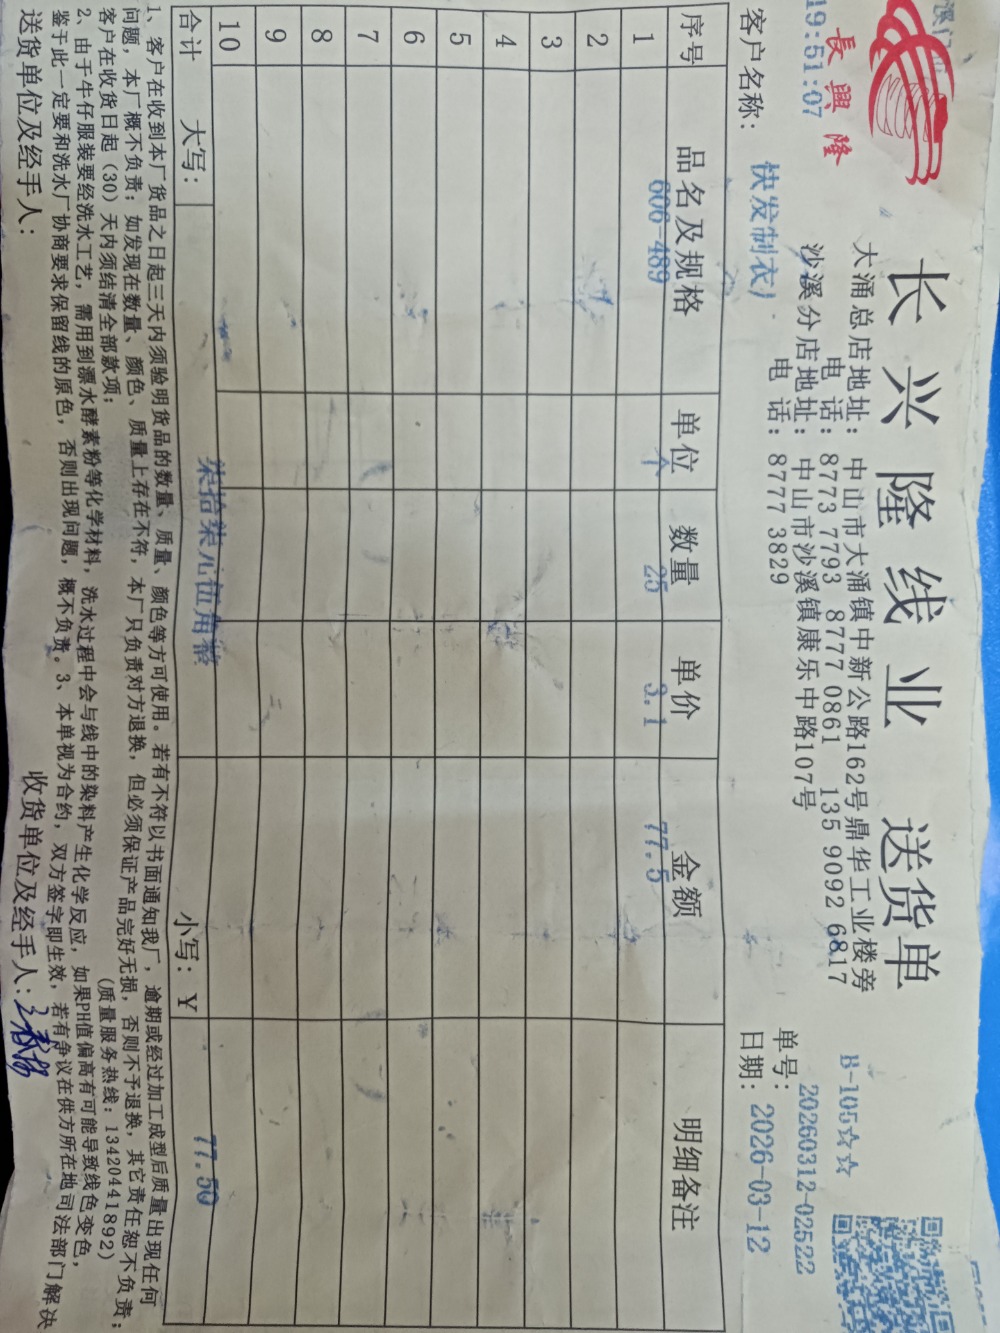 長興隆
19:51:07
长兴隆线业 送货单
B-105☆☆
大涌总店地址：中山市大涌镇中新公路162号鼎华工业楼旁
电 话：8773 7793 8777 0861 135 9092 6817
沙溪分店地址：中山市沙溪镇康乐中路107号
电 话：8777 3829
单号：20260312-02522
客户名称：快发制衣厂
日期：2026-03-12
序号 品名及规格 单位 数量 单价 金额 明细备注
1 606-489 个 25 3.1 77.5
2
3
4
5
6
7
8
9
10
合计 大写：柒拾柒元伍角整 小写：￥ 77.50
1、客户在收到本厂货品之日起三天内须验明货品的数量、质量、颜色等方可使用。若有不符以书面通知我厂，逾期或经过加工成型后质量出现任何
问题，本厂概不负责；如发现在数量、颜色、质量上存在不符，本厂只负责对方退换，但必须保证产品完好无损，否则不予退换，其它责任恕不负责；
客户在收货日起（30）天内须结清全部款项； （质量服务热线：13420441892）
2、由于牛仔服装要经洗水工艺，需用到漂水酵素粉等化学材料，洗水过程中会与线中的染料产生化学反应，如果PH值偏高有可能导致线色变色，
鉴于此一定要和洗水厂协商要求保留线的原色，否则出现问题，概不负责。3、本单视为合约，双方签字即生效，若有争议在供方所在地司法部门解决
送货单位及经手人： 收货单位及经手人：